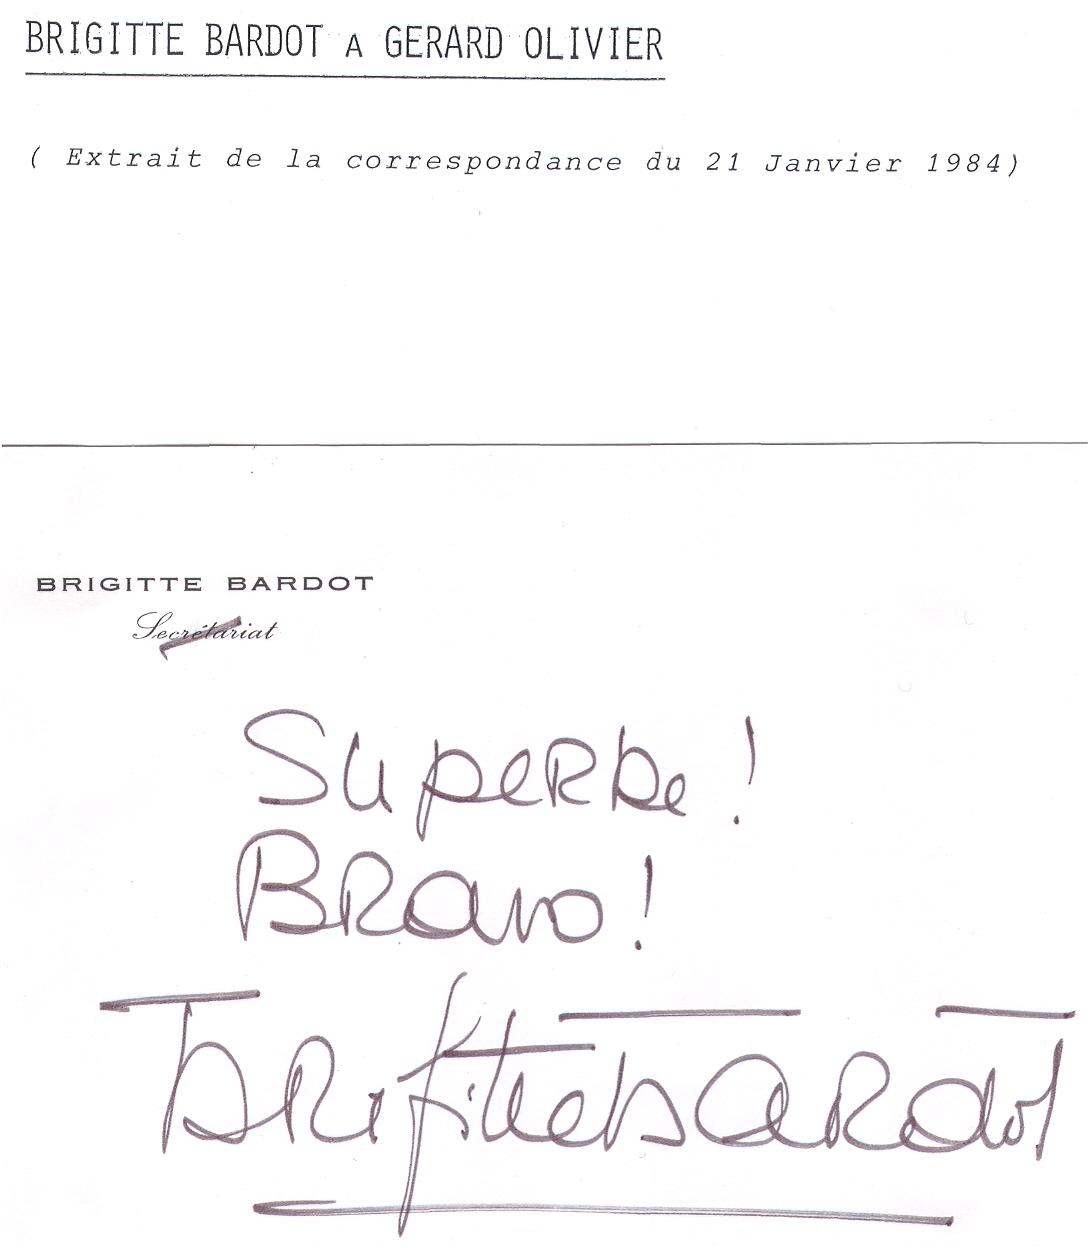 BRIGITTE BARDOT A GERARD OLIVIER
( Extrait de la correspondance du 21 Janvier 1984)
BRIGITTE BARDOT
Secrétariat
Superbe !
Bravo !
Brigitte Bardot